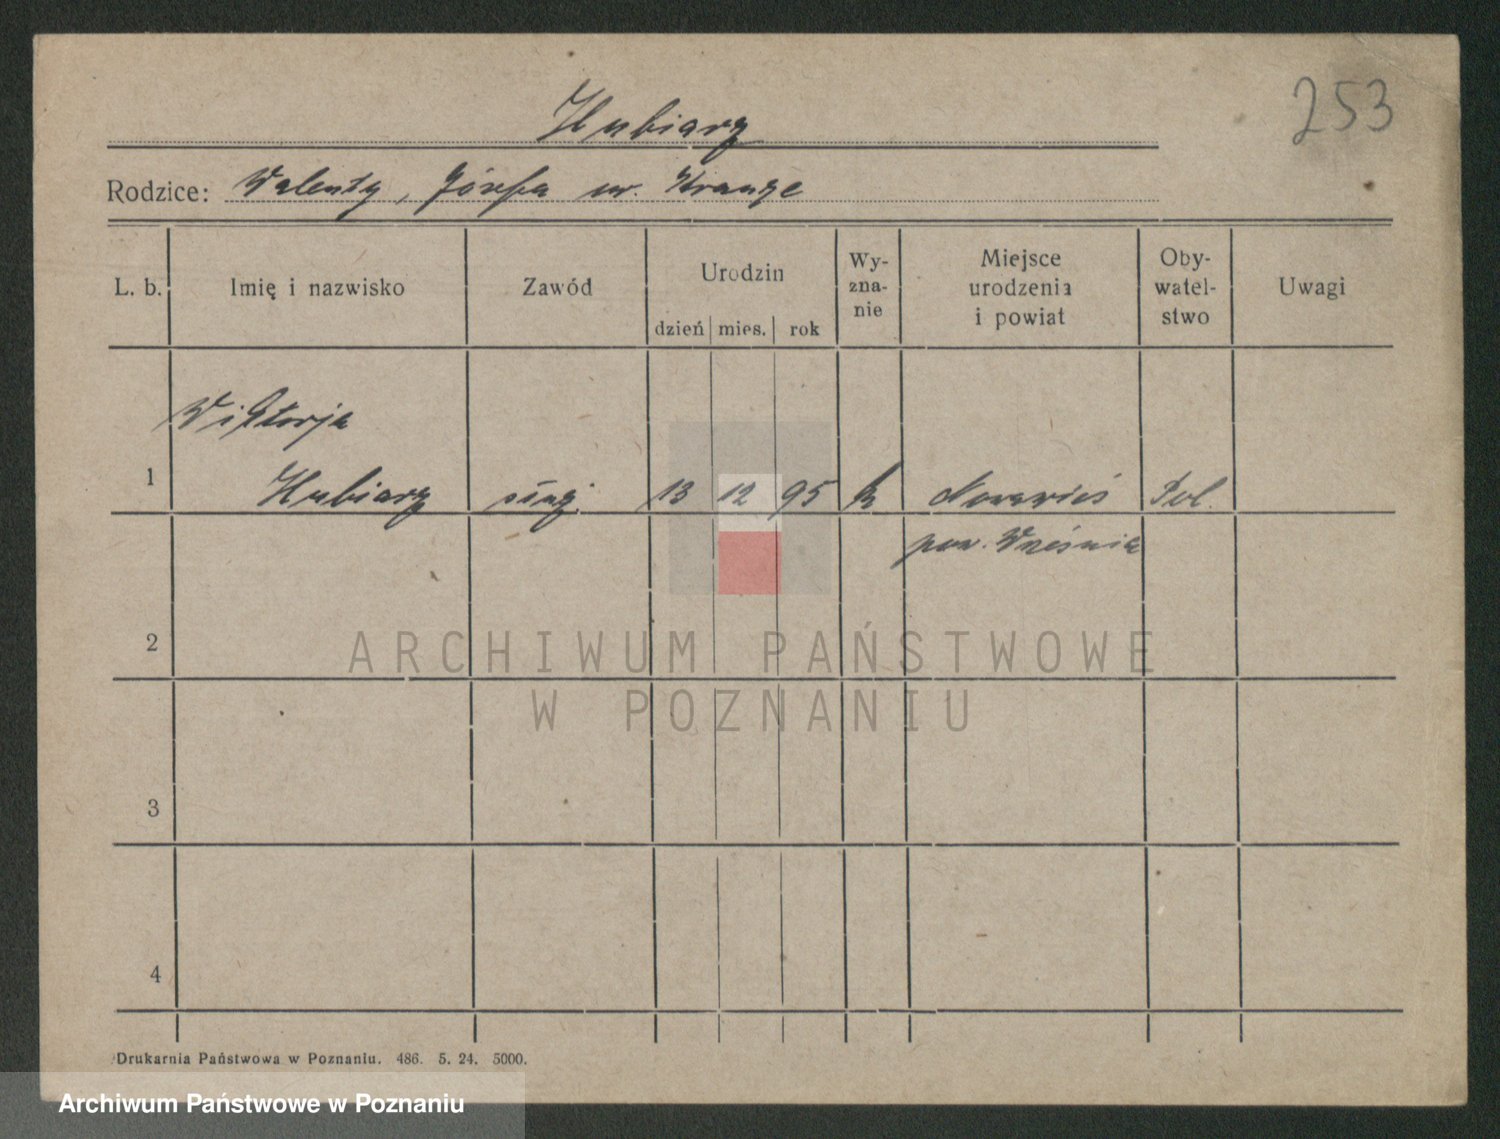 253
Kubiarz
Rodzice: Walenty, Józefa ur. Krauze
L. b.
Imię i nazwisko
Zawód
Urodzin
dzień mies. rok
Wy-
zna-
nie
Miejsce
urodzenia
i powiat
Oby-
watel-
stwo
Uwagi
Wiktorja
1 Kubiarz służ. 13 12 95 k Nowawieś Pol.
pow. Września
2
3
4
ARCHIWUM PAŃSTWOWE
W POZNANIU
Drukarnia Państwowa w Poznaniu. 486. 5. 24. 5000.
Archiwum Państwowe w Poznaniu